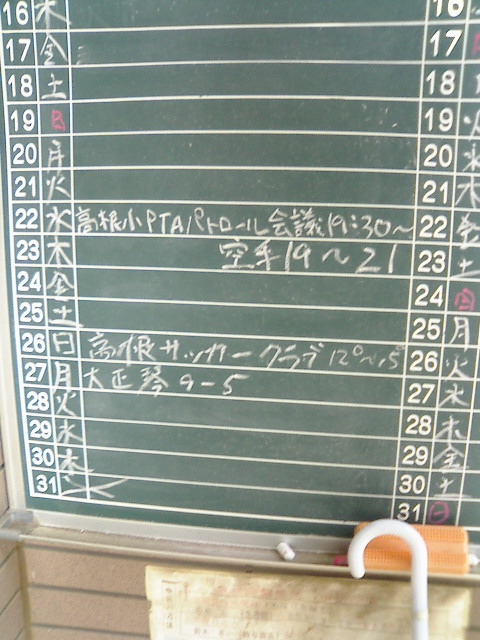 16 木
17 金
18 土
19 日
20 月
21 火
22 水 高根小PTAパトロール会議19:30~
23 木 空手19~21
24 金
25 土
26 日 高根サッカークラブ
27 月 大正琴 9-5
28 火
29 水
30 木
31
16
17
18
19 火
20 水
21 木
22 金
23 土
24 日
25 月
26 火
27 水
28 木
29 金
30 土
31 日